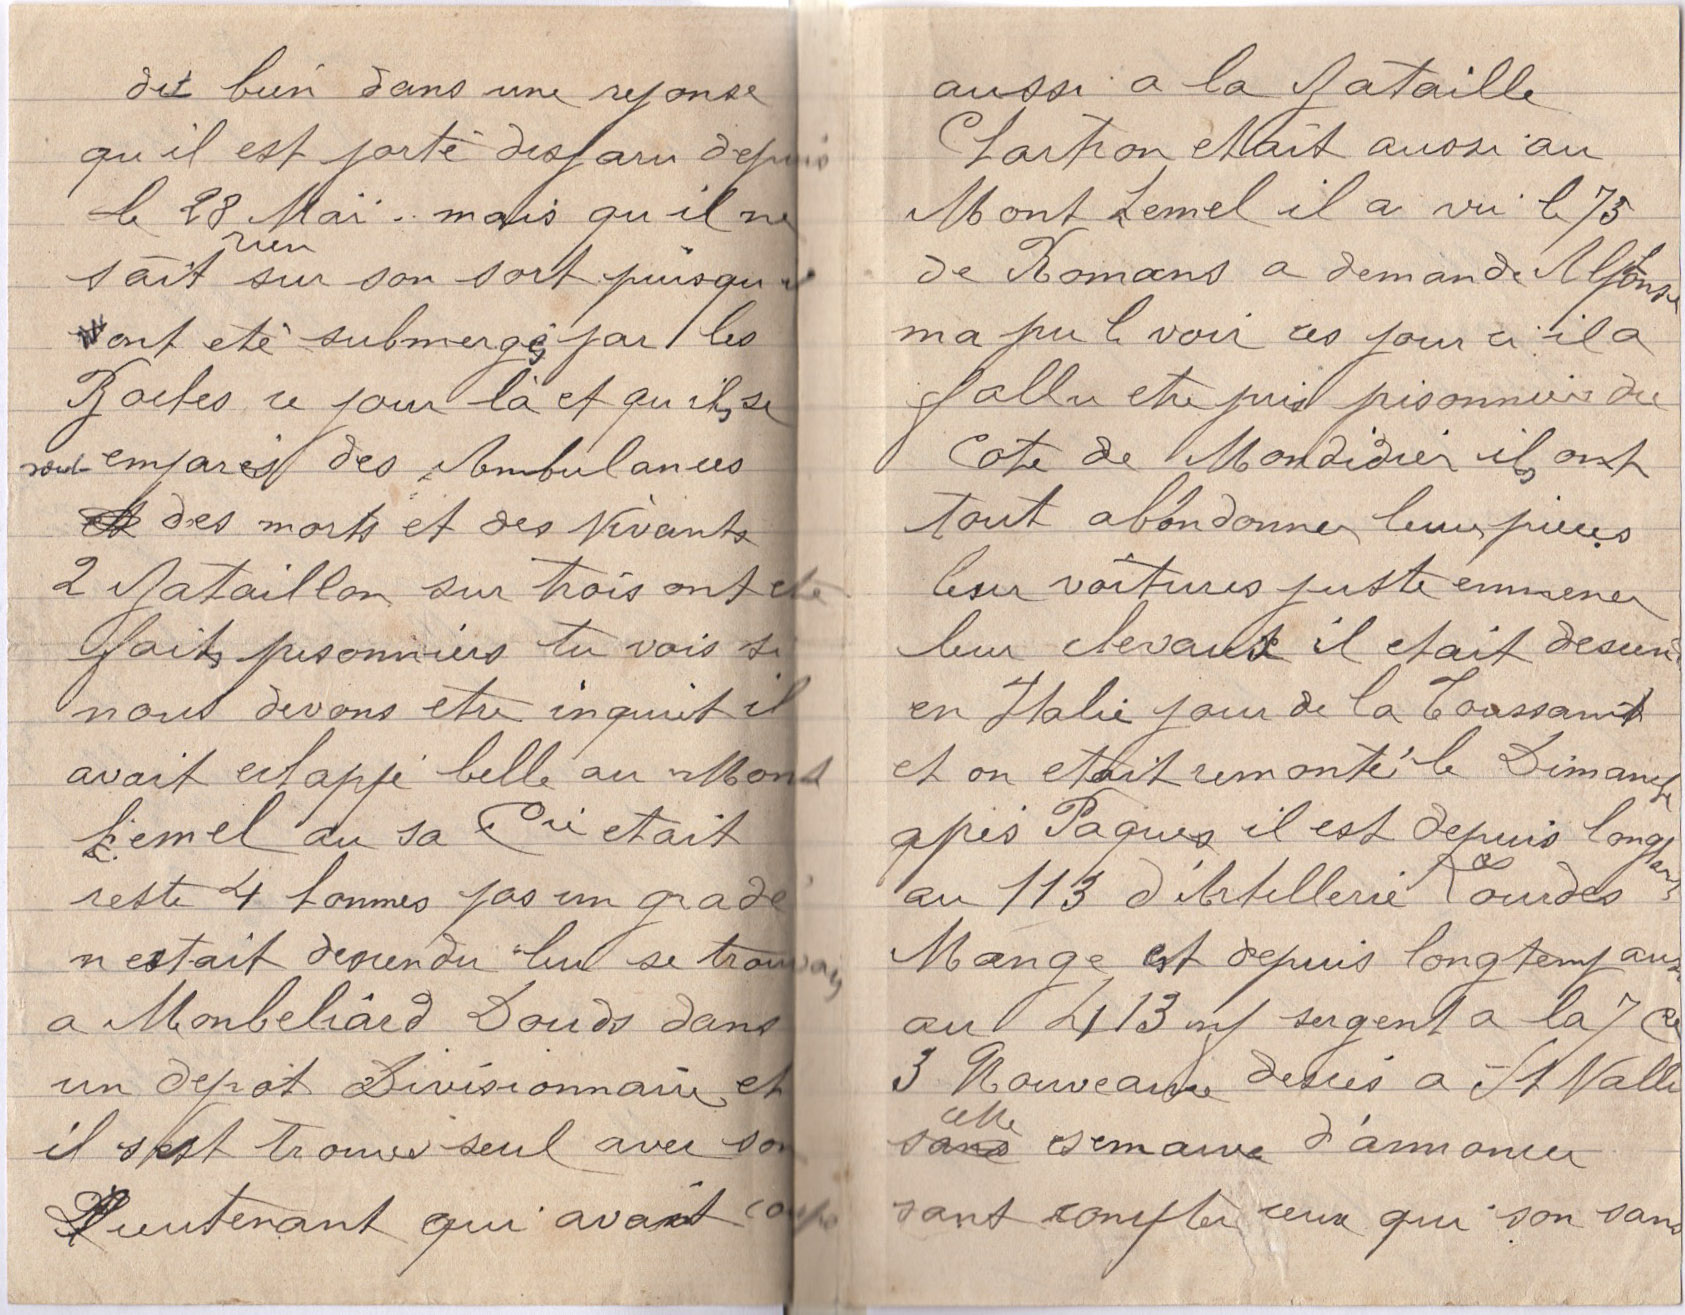 dit bien dans une reponse
qu il est porté disparu depuis
le 28 Mai . mais qu il ne
sait rien sur son sort puisqu il
ont eté submergés par les
Boches ce jour la et qu ils se
sont emparés des Ambulances
des morts et des Vivants
2 Bataillon sur trois ont ete
faits prisonniers tu vois si
nous devons etre inquiet il
avait echappé belle au Mont
Kemel au sa Cie etait
reste 4 hommes pas un grade
n estait descendu lui se trouvais
a Monbeliard Doubs dans
un depot Divisionnaire et
il s est trouve seul avec son
Lieutenant qui avait coupé
aussi a la Bataille
Chartron etait aussi au
Mont Kemel il a vu le 75
de Romans a demande Alfonse
ma pu le voir ces jour ci il a
fallu etre pris prisonnier du
Cote de Mondidier ils ont
tout abondonner leurs pieces
leur voitures juste emmener
leur chevaux il etait descendu
en Italie jour de la Toussaint
et on etait remonté le Dimanche
apres Paques il est depuis longtemps
au 113 d'Artillerie Lourdes
Mange est depuis longtemp aussi
au 413 inf sergent a la 7 Cie
3 Nouveaux deces a St Valli
cette semaine d'annoncer
sant compter ceux qui son sans